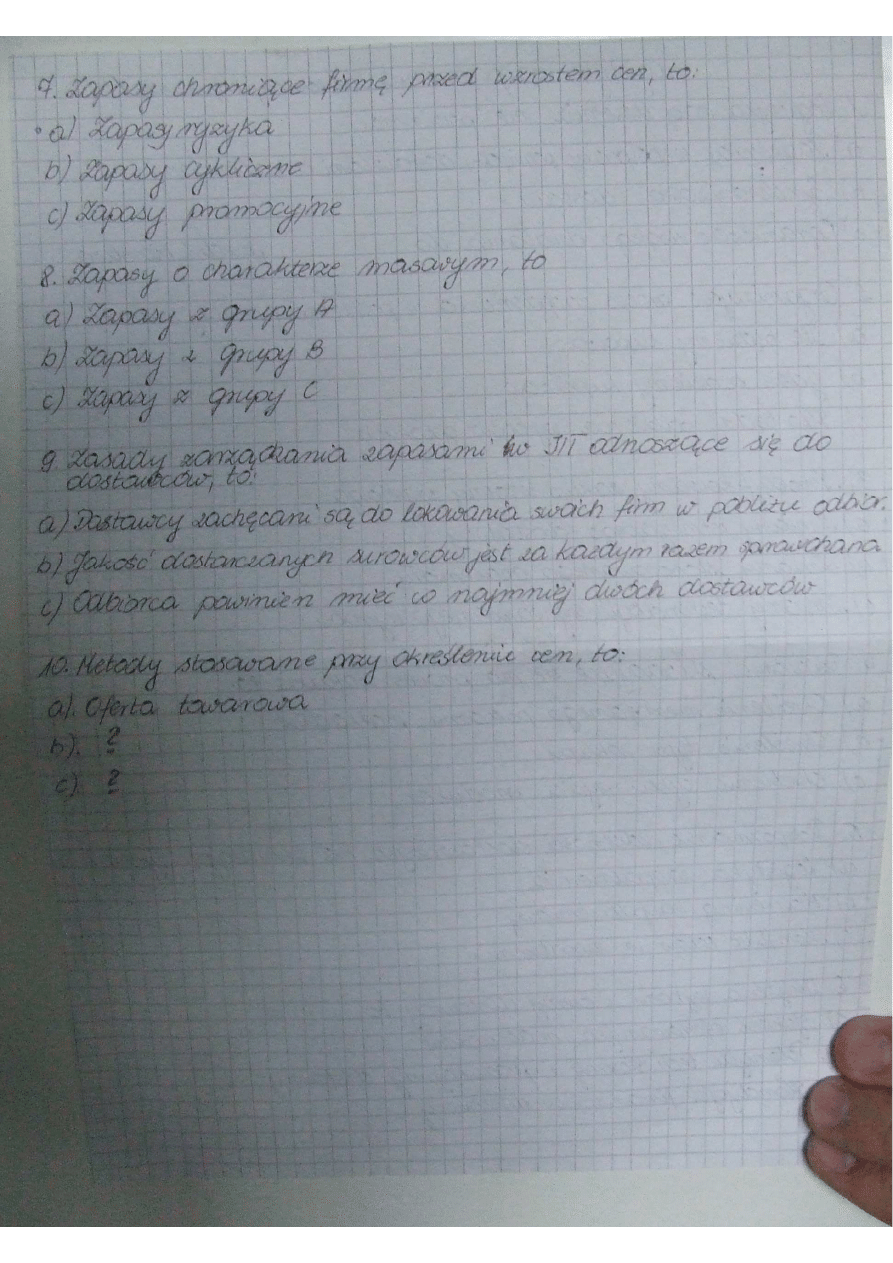 7. Zapasy chroniące firmę przed wzrostem cen, to:
a) Zapasy ryzyka
b) Zapasy cykliczne
c) Zapasy promocyjne
8. Zapasy o charakterze masowym, to
a) Zapasy z grupy A
b) Zapasy z grupy B
c) Zapasy z grupy C
9. Zasady zarządzania zapasami w JIT odnoszące się do
dostawców, to:
a) Dostawcy zachęcani są do lokowania swoich firm w pobliżu odbior.
b) Jakość dostarczanych surowców jest za każdym razem sprawdzana
c) Odbiorca powinien mieć co najmniej dwóch dostawców
10. Metody stosowane przy określeniu cen, to:
a). Oferta towarowa
b). ?
c). ?